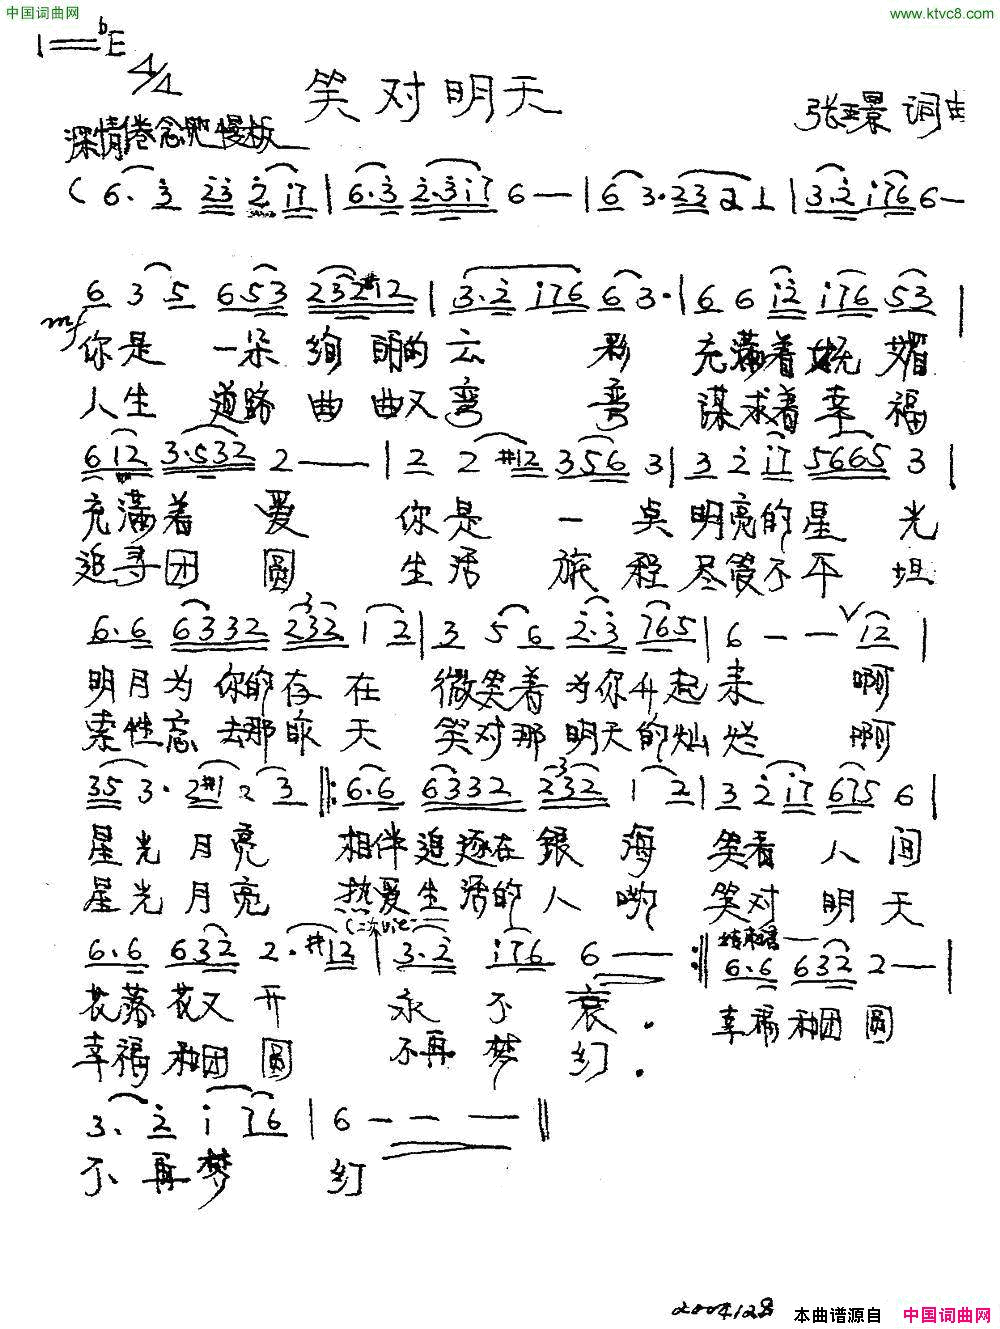 中国词曲网
www.ktvc8.com
1=ᵇE
4/4
笑对明天
张玉景 词曲
深情倦念地 慢板
(6. 3 23 2 i7 | 6.3 2.3i7 6 — — | 6 3.23 2 1 | 3.2 i76 6 —
6 3 5 653 232#12 | 3.2 i76 6 3. | 6 6 i2 i76 53 |
mf
你是 一朵绚明的云 彩 充满着妩媚
人生 道路曲曲又弯 弯 谋求着幸福
6i2 3.532 2 — — | 2 2 #12 356 3 | 3 2 i7 5665 3 |
充满着 爱 你是 一 桌明亮的星 光
追寻团 圆 生活 旅程尽管不平坦
6.6 6332 232 1 2 | 3 5 6 2.3 765 | 6 — — V i2 |
明月为你的存在 微笑着为你升起来 啊
索性忘去那昨天 笑对那明天的灿烂 啊
35 3. 2#1. 2 3 ‖: 6.6 6332 232 1 2 | 3 2 i7 675 6 |
星光月亮 相伴追逐在银海 笑看人间
星光月亮 热爱生活的人哟 笑对明天
6.6 632 2. #12 | 3.2 i76 6 — — :‖ 结束句 6.6 632 2 — — |
花落花又开 永不衰. 幸福和团圆
幸福和团圆 不再梦幻.
3. 2 i 76 | 6 — — — ‖
不再梦 幻
2004.12.8
本曲谱源自 中国词曲网